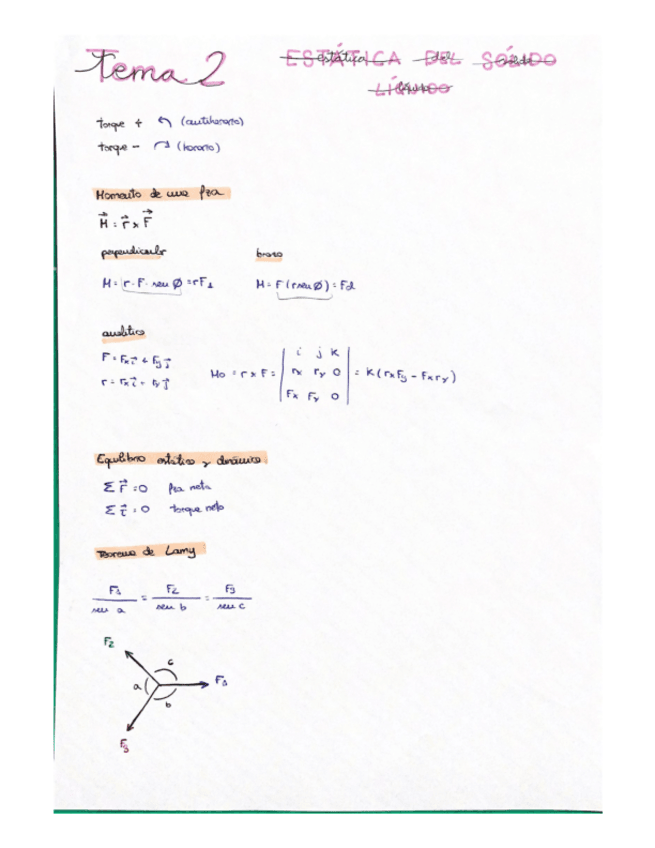 Tema 2 ESTÁTICA DEL SÓLIDO
torque + ↰ (antihorario)
torque - ↷ (horario)
Momento de una fza
M⃗ = r⃗ x F⃗
perpendicular
brazo
M = r · F · sen Ø = rF⊥
M = F (r sen Ø) = Fd
analítico
F = Fx i⃗ + Fy j⃗
r = rx i⃗ + ry j⃗
Mo = r x F = | i j k | rx ry 0 | Fx Fy 0 | = K (rxFy - Fxry)
Equilibrio estático y dinámico
Σ F⃗ = 0 fza neta
Σ τ⃗ = 0 torque neto
Teorema de Lamy
F1 / sen a = F2 / sen b = F3 / sen c
F2
c
a
F1
b
F3